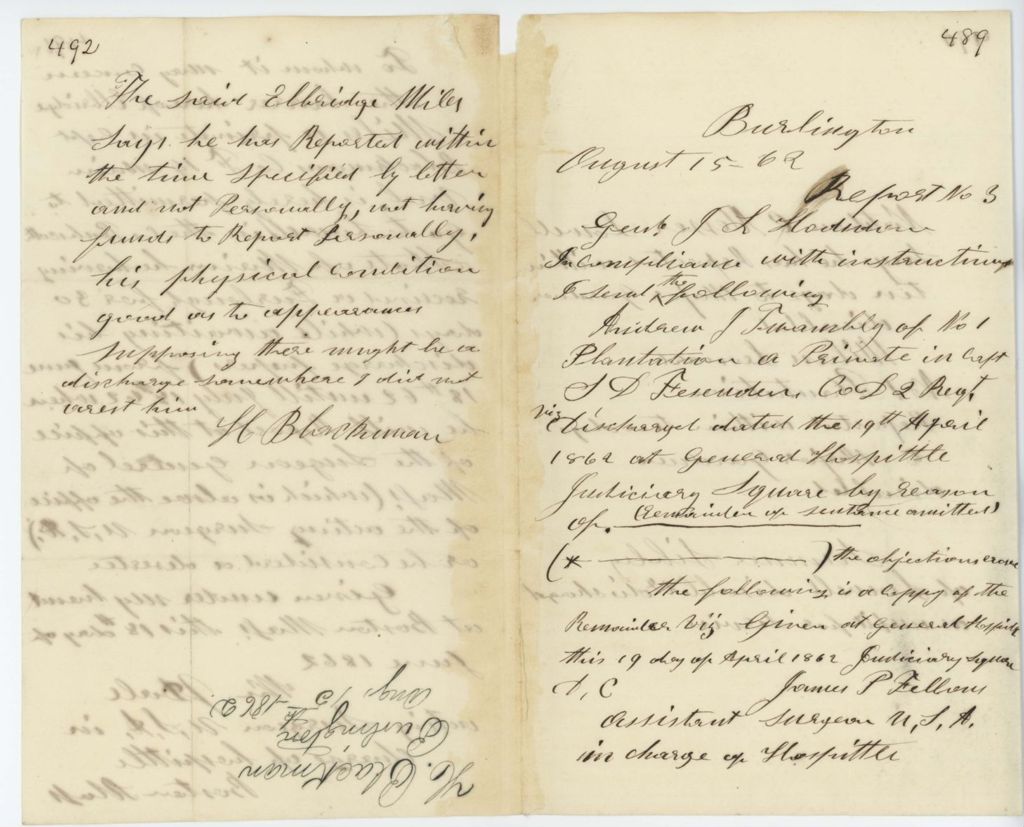 492
The said Elbridge Miles
says he has Reported within
the time specified by letter
and not Personally, not having
funds to Report Personally.
his physical condition
good as to appearances
supposing there might be a
discharge somewhere I did not
arest him
H Blackman
H. Blackman
Burlington
Aug 15 1862
489
Burlington
August 15 - 62
Report No 3
Genl J L Hodsdon
In compliance with instructions
I send the following
Andrew J Twambly of No 1
Plantation a Private in Capt
S D Fesenden, Co D 2 Regt
viz Discharged dated the 19th April
1862 at General Hospittle
Judiciary Square by reason
of. (Remainder of sentence omitted)
(* ——— ) the objections
the following is a coppy of the
Remainder Viz Given at General Hospittle
this 19 day of April 1862 Judiciary Square
D, C James P Fellows
assistant surgeon U, S, A.
in charge of Hospittle